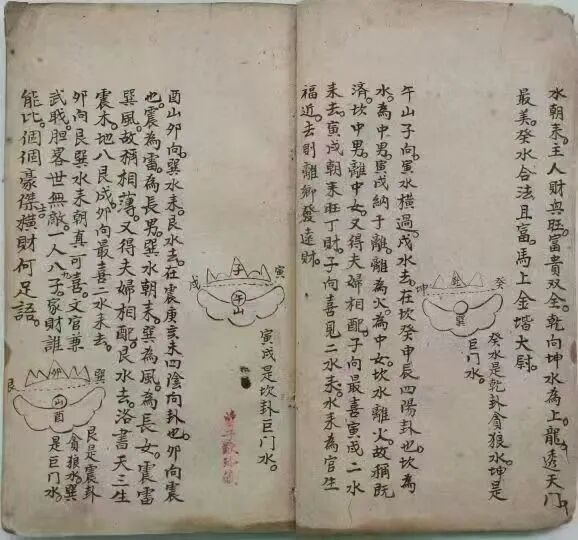 水朝來。主人財與旺富貴双全。乾向坤水為上。龍透天門
最美。癸水合法且富。馬上金堦大尉。
癸水是乾卦貪狼水。坤是
巨門水。
癸
乾
坤
巽
午山子向。寅水橫過。戌水去。在坎癸申辰四陽卦也。坎為
水。為中男。寅戌納于離。離為火。為中女。坎水離火。故稱既
濟。坎中男。離中女。又得夫婦相配。子向最喜寅戌二水
來去。寅戌朝來旺丁財。子向喜見二水來。水來為官生
福近。去則離鄉發達財。
寅
子
戌
午
山
寅戌是坎卦巨門水。
酉山卯向。巽水來。艮水去。在震庚亥未四陰向卦也。卯向震
也。震為雷。為長男。巽水朝來。巽為風。為長女。震雷
巽風。故稱相薄。又得夫婦相配。艮水去。洛書天三生
震木。地八艮成。卯向最喜二水來去。
卯向艮巽水來朝真可喜。文官兼
武戰胆畧世無敵。一人八九子。家財誰
能比。個個豪傑士。橫財何足語。
巽
卯
艮
山
酉
艮是震卦
貪狼水。巽
是巨門水。